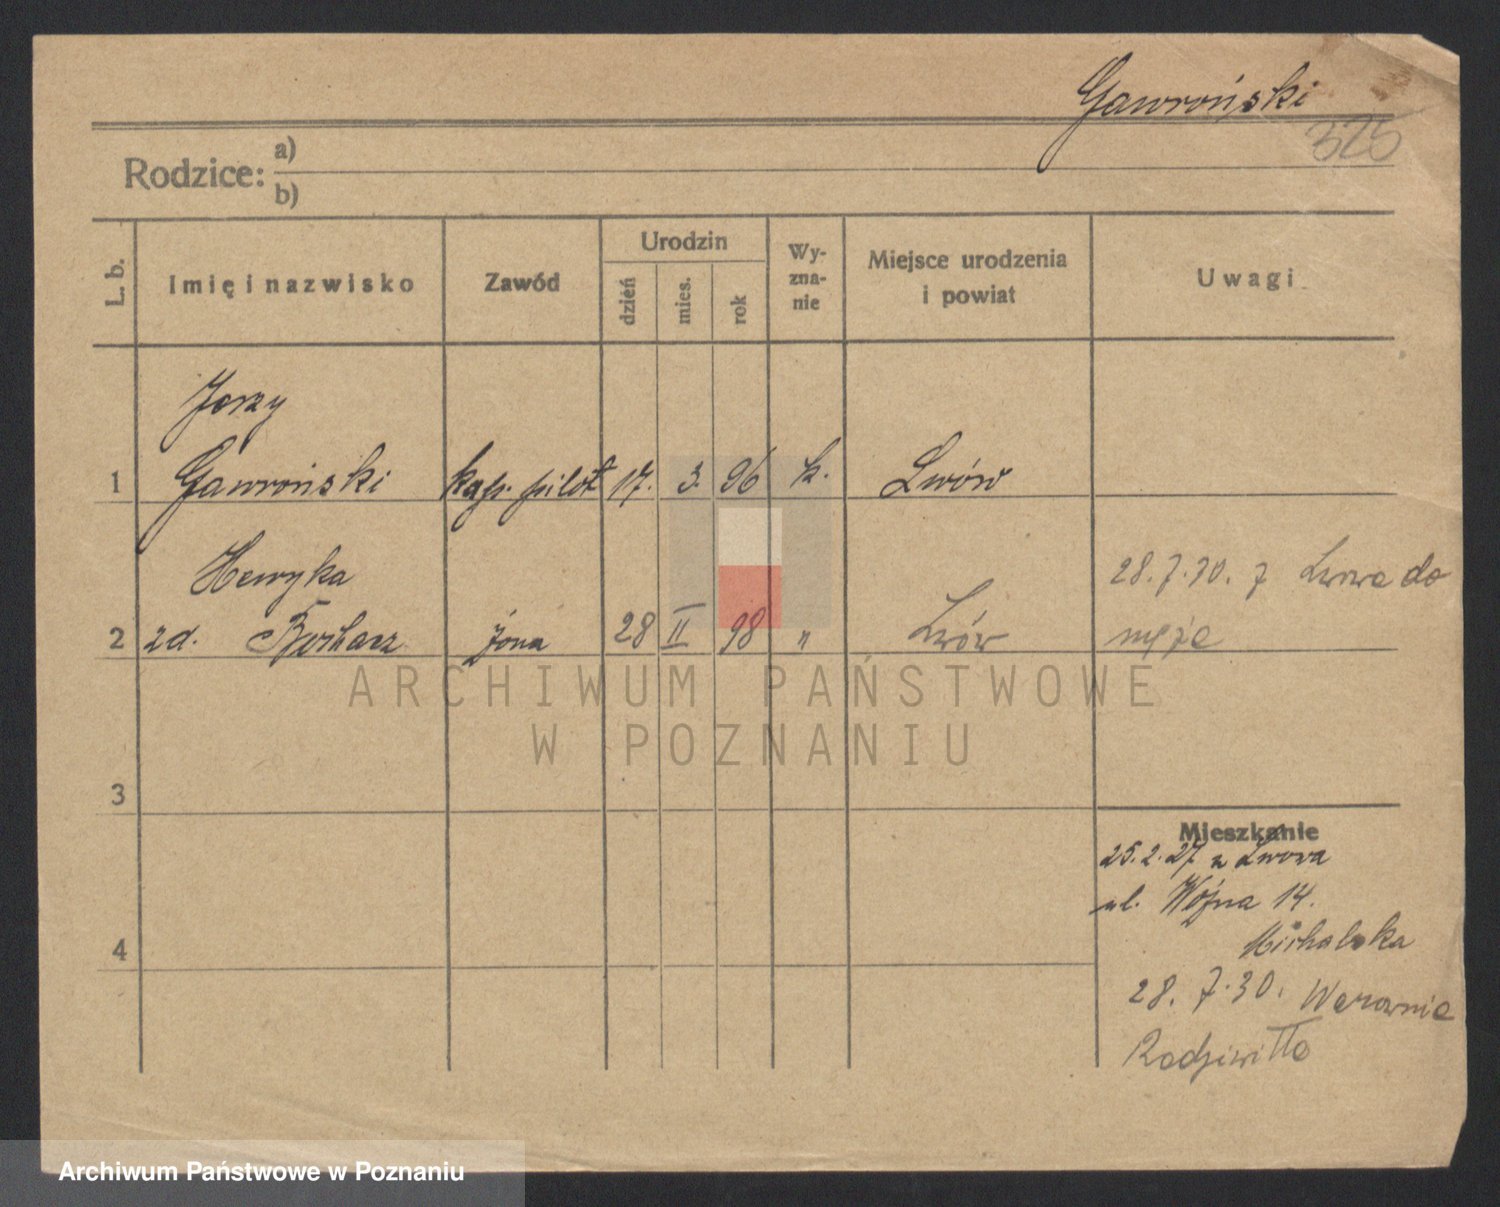 Gawroński
325
Rodzice: a)
b)
L. b. Imię i nazwisko Zawód Urodzin dzień mies. rok Wy-zna-nie Miejsce urodzenia i powiat Uwagi
Jerzy
1 Gawroński kap. pilot 17. 3. 96 k. Lwów
Henryka 28.7.30. z Lwowa do
2 zd. żona 28 II 98 " Lwów męża
ARCHIWUM PAŃSTWOWE
W POZNANIU
3
Mieszkanie
25.2.27 z Lwowa
ul. Wójna 14.
4 Michalska
28. 7.30. Warownia
Radziwiłła
Archiwum Państwowe w Poznaniu